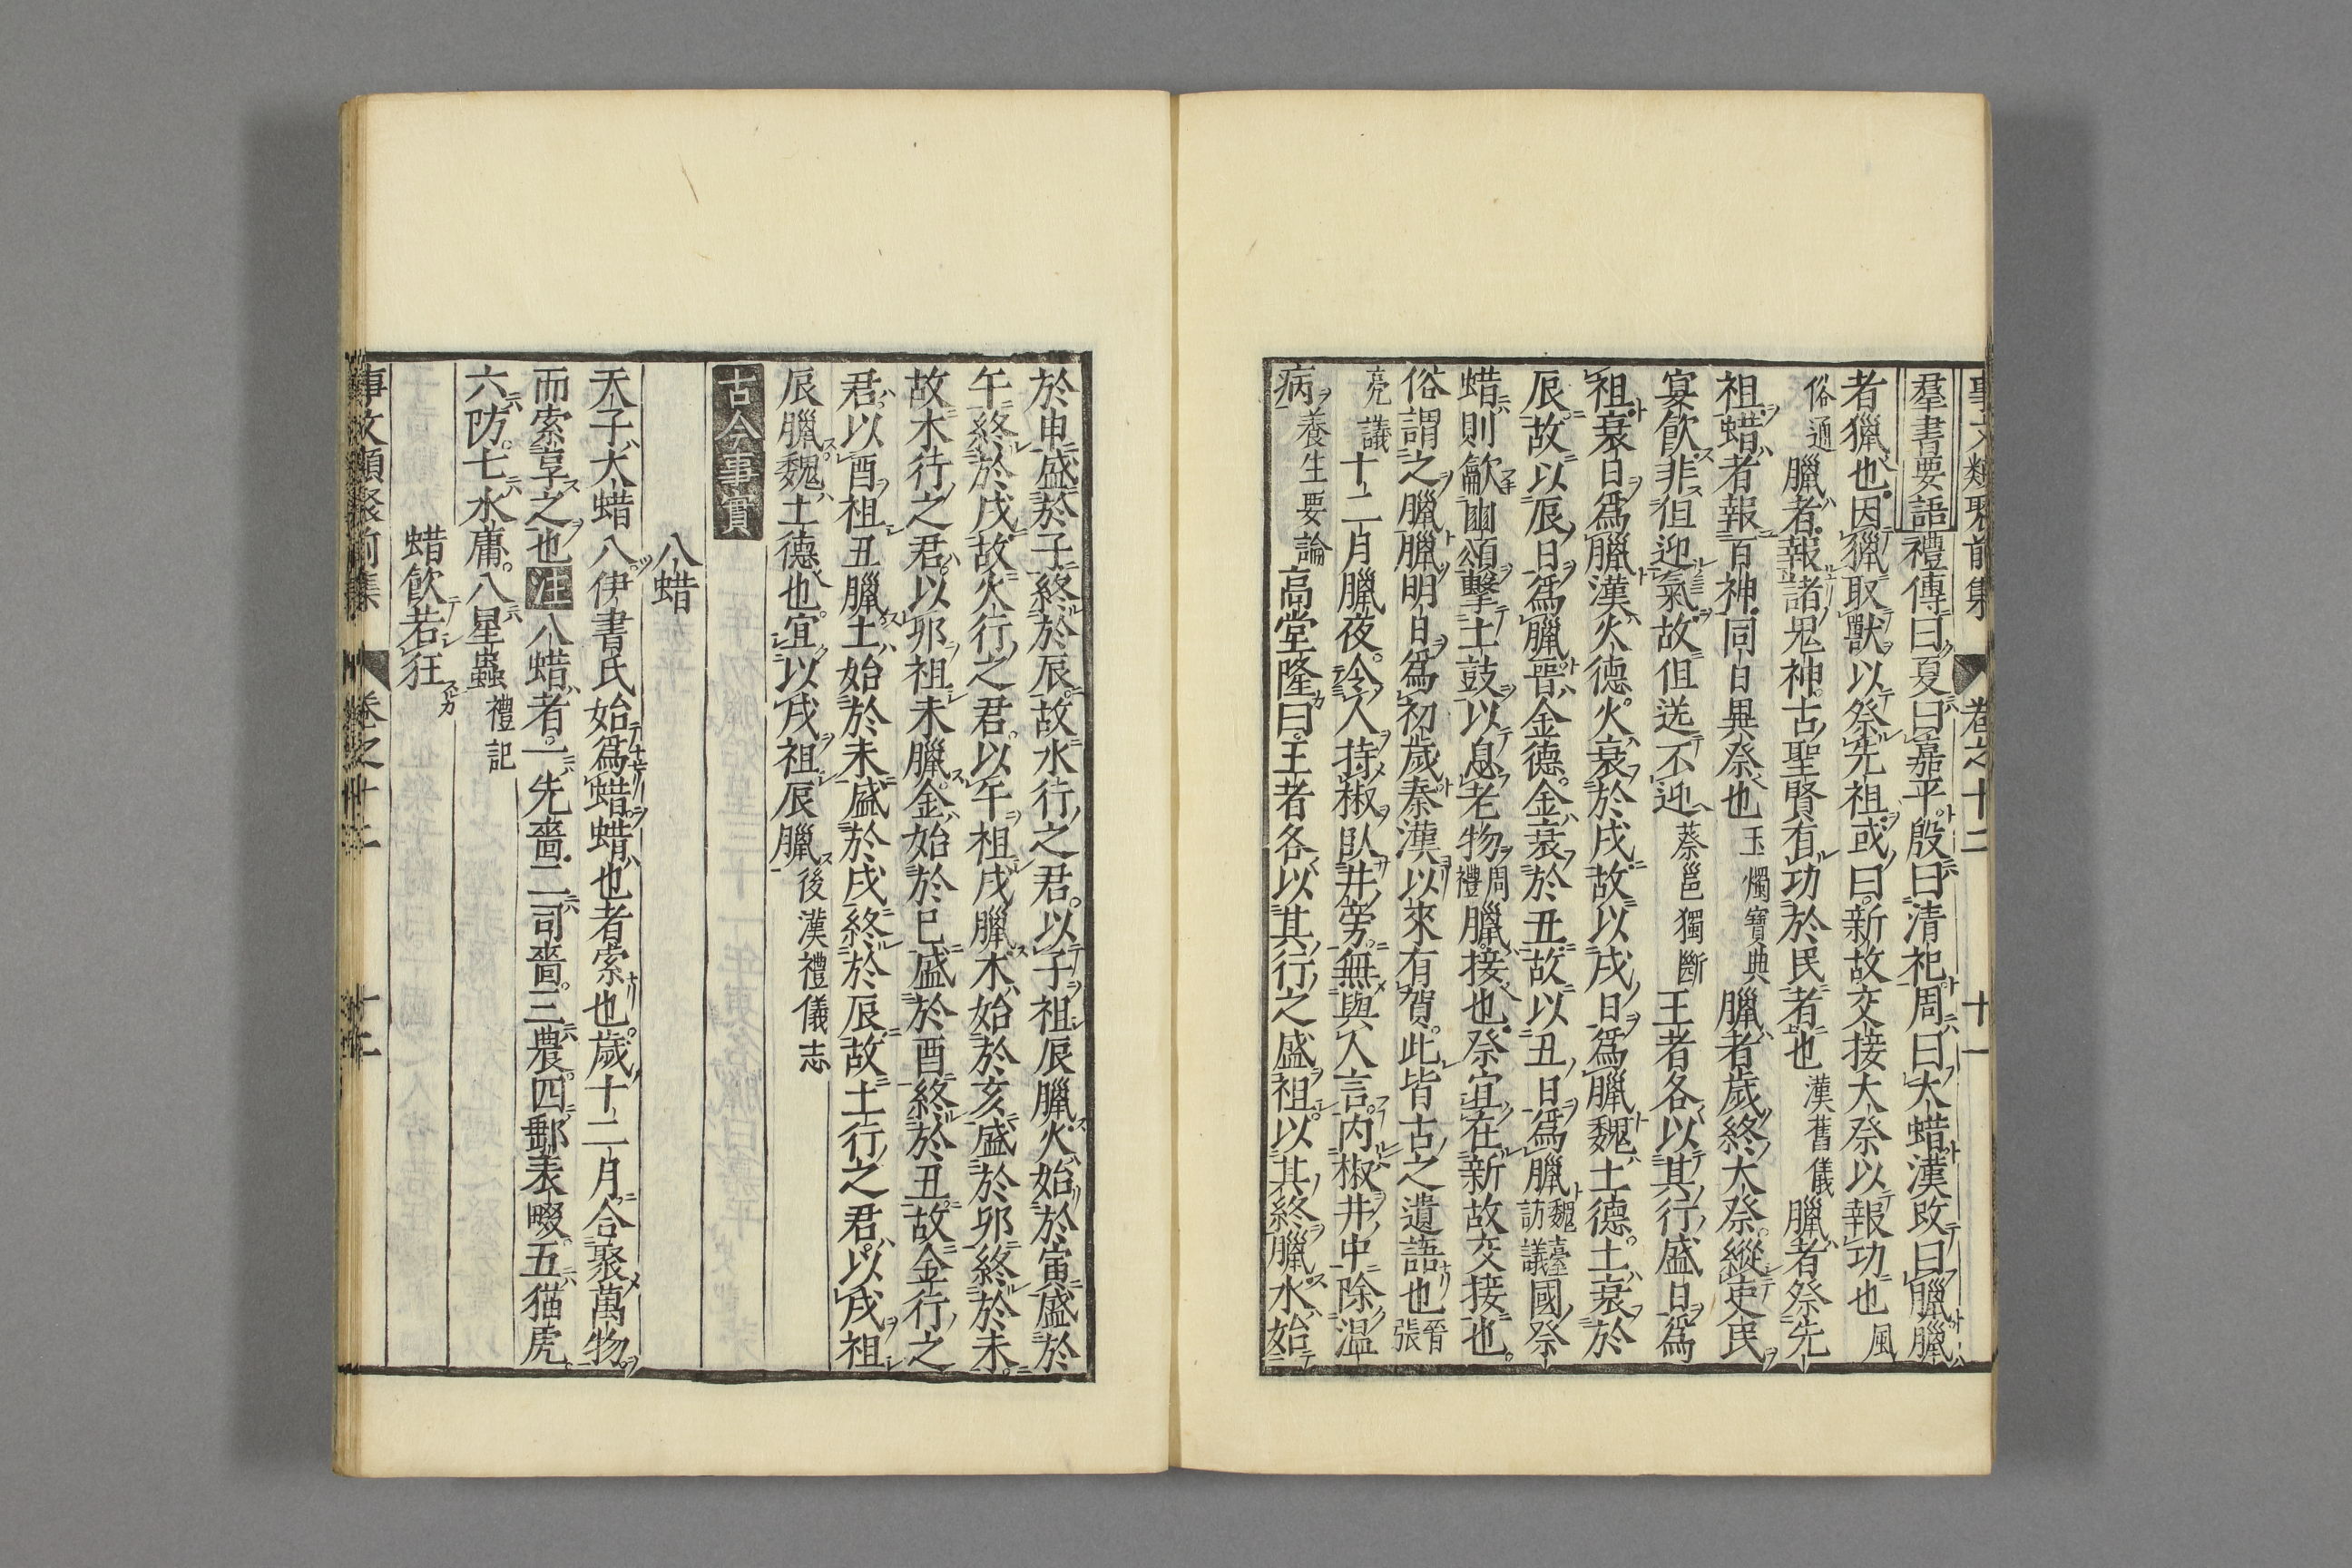 事文類聚前集 卷之十二 十一
羣書要語禮傳曰夏曰嘉平殷曰清祀周曰大蜡漢改曰臘臘
者獵也因獵取獸以祭先祖或曰新故交接大祭以報功也風
俗通臘者報諸鬼神古聖賢有功於民者也漢舊儀臘者祭先
祖蜡者報百神同日異祭也玉燭寶典臘者歲終大祭縱吏民
宴飲非但迎氣故但送不迎蔡邕獨斷王者各以其行盛日爲
祖衰日爲臘漢火德火衰於戌故以戌日爲臘魏土德土衰於
辰故以辰日爲臘晉金德金衰於丑故以丑日爲臘魏臺訪議國祭
蜡則龡豳頌擊土鼓以息老物周禮臘接也祭宜在新故交接也
俗謂之臘臘明日爲初歲秦漢以來有賀此皆古之遺語也晉張
亮議十二月臘夜令人持椒臥井旁無與人言内椒井中除温
病養生要論高堂隆曰王者各以其行之盛祖以其終臘水始
於申盛於子終於辰故水行之君以子祖辰臘火始於寅盛於
午終於戌故火行之君以午祖戌臘木始於亥盛於卯終於未
故木行之君以卯祖未臘金始於巳盛於酉終於丑故金行之
君以酉祖丑臘土始於未盛於戌終於辰故土行之君以戌祖
辰臘魏土德也宜以戌祖辰臘後漢禮儀志
古今事實
八蜡
天子大蜡八伊耆氏始爲蜡蜡也者索也歲十二月合聚萬物
而索享之也注八蜡者一先嗇二司嗇三農四郵表畷五猫虎
六防七水庸八星蟲禮記
蜡飲若狂
事文類聚前集 卷之十二